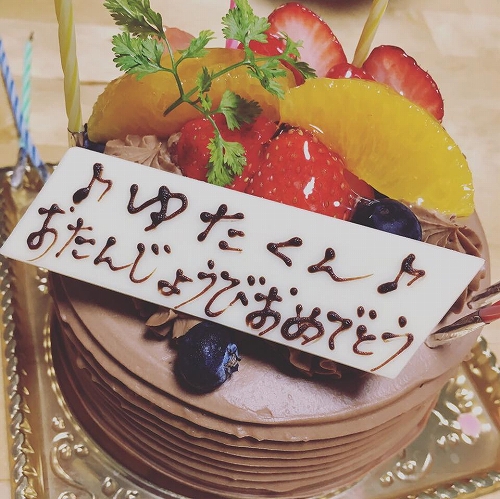 ♪ゆたくん♪
おたんじょうびおめでとう